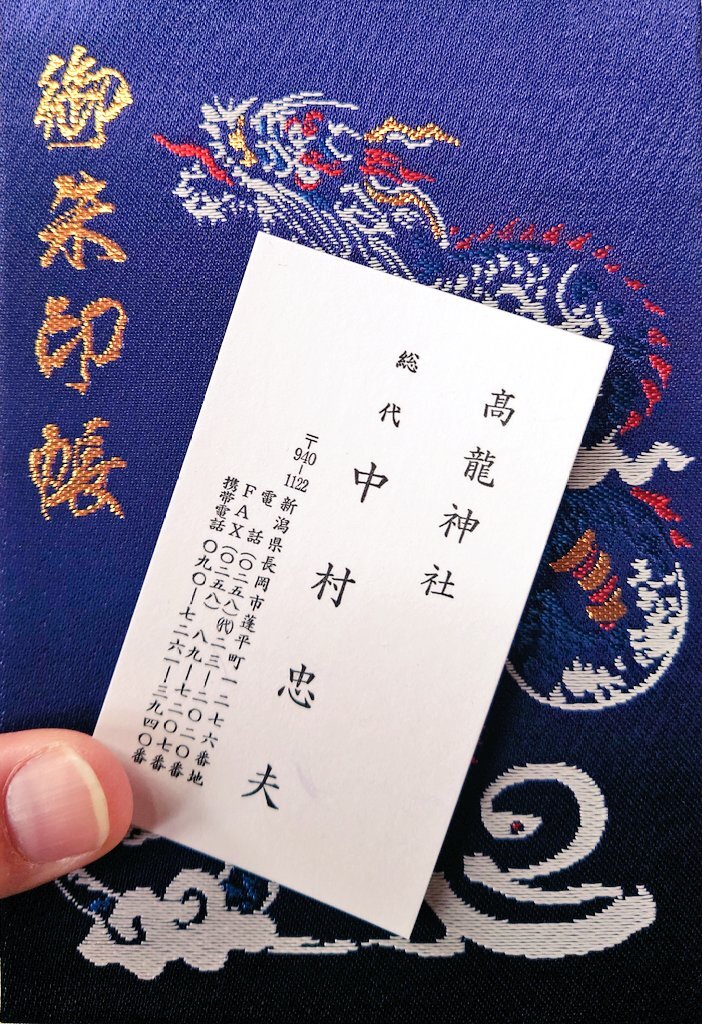 御朱印帳
髙龍神社
総代
中村忠夫
〒940-1122 新潟県長岡市蓬平町一二七六番地
電話(〇二五八)㈹二三―二〇二〇番
FAX(〇二五八) 八九―七二〇七番
携帯電話 〇九〇―七二六一―三九四〇番